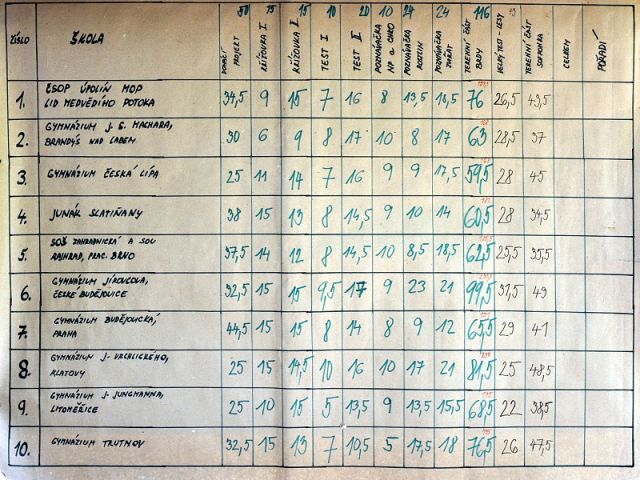 50 15 15 10 20 10 24 24 116
ČÍSLO ŠKOLA DOMÁCÍ PROJEKT KŘÍŽOVKA I KŘÍŽOVKA I TEST I TEST II POZNÁVAČKA NP a CHKO POZNÁVAČKA ROSTLIN POZNÁVAČKA ZVÍŘAT TERENNÍ ČÁST BRDY VELKÝ TEST - LESY TERENNÍ ČÁST CELKEM POŘADÍ
1. ČSOP ÚPOLÍN MOP 34,5 9 15 7 16 8 13,5 18,5 76 26,5 43,5
LID MEDVĚDÍHO POTOKA
2. GYMNÁZIUM J. S. MACHARA, 30 6 9 8 17 10 8 17 63 28,5 37
BRANDÝS NAD LABEM
3. GYMNÁZIUM ČESKÁ LÍPA 25 11 14 7 16 9 9 17,5 59,5 28 45
4. JUNÁK SLATIŇANY 38 15 13 8 14,5 9 10 14 60,5 28 34,5
5. SOŠ ZAHRADNICKÁ A SOU 37,5 14 12 8 14,5 10 8,5 18,5 62,5 25,5 35,5
RAJHRAD, PRAC. BRNO
6. GYMNÁZIUM JÍROVCOVA, 32,5 15 15 9,5 17 9 23 21 99,5 31,5 49
ČESKÉ BUDĚJOVICE
7. GYMNÁZIUM BUDĚJOVICKÁ, 44,5 15 15 8 14 8 9 12 65,5 29 41
PRAHA
8. GYMNÁZIUM J. VRCHLICKÉHO, 25 15 14,5 10 16 10 17 21 81,5 25 48,5
KLATOVY
9. GYMNÁZIUM J. JUNGMANNA, 25 10 15 5 13,5 9 13,5 15,5 68,5 22 38,5
LITOMĚŘICE
10. GYMNÁZIUM TRUTNOV 32,5 15 13 7 10,5 5 17,5 18 76,5 26 47,5